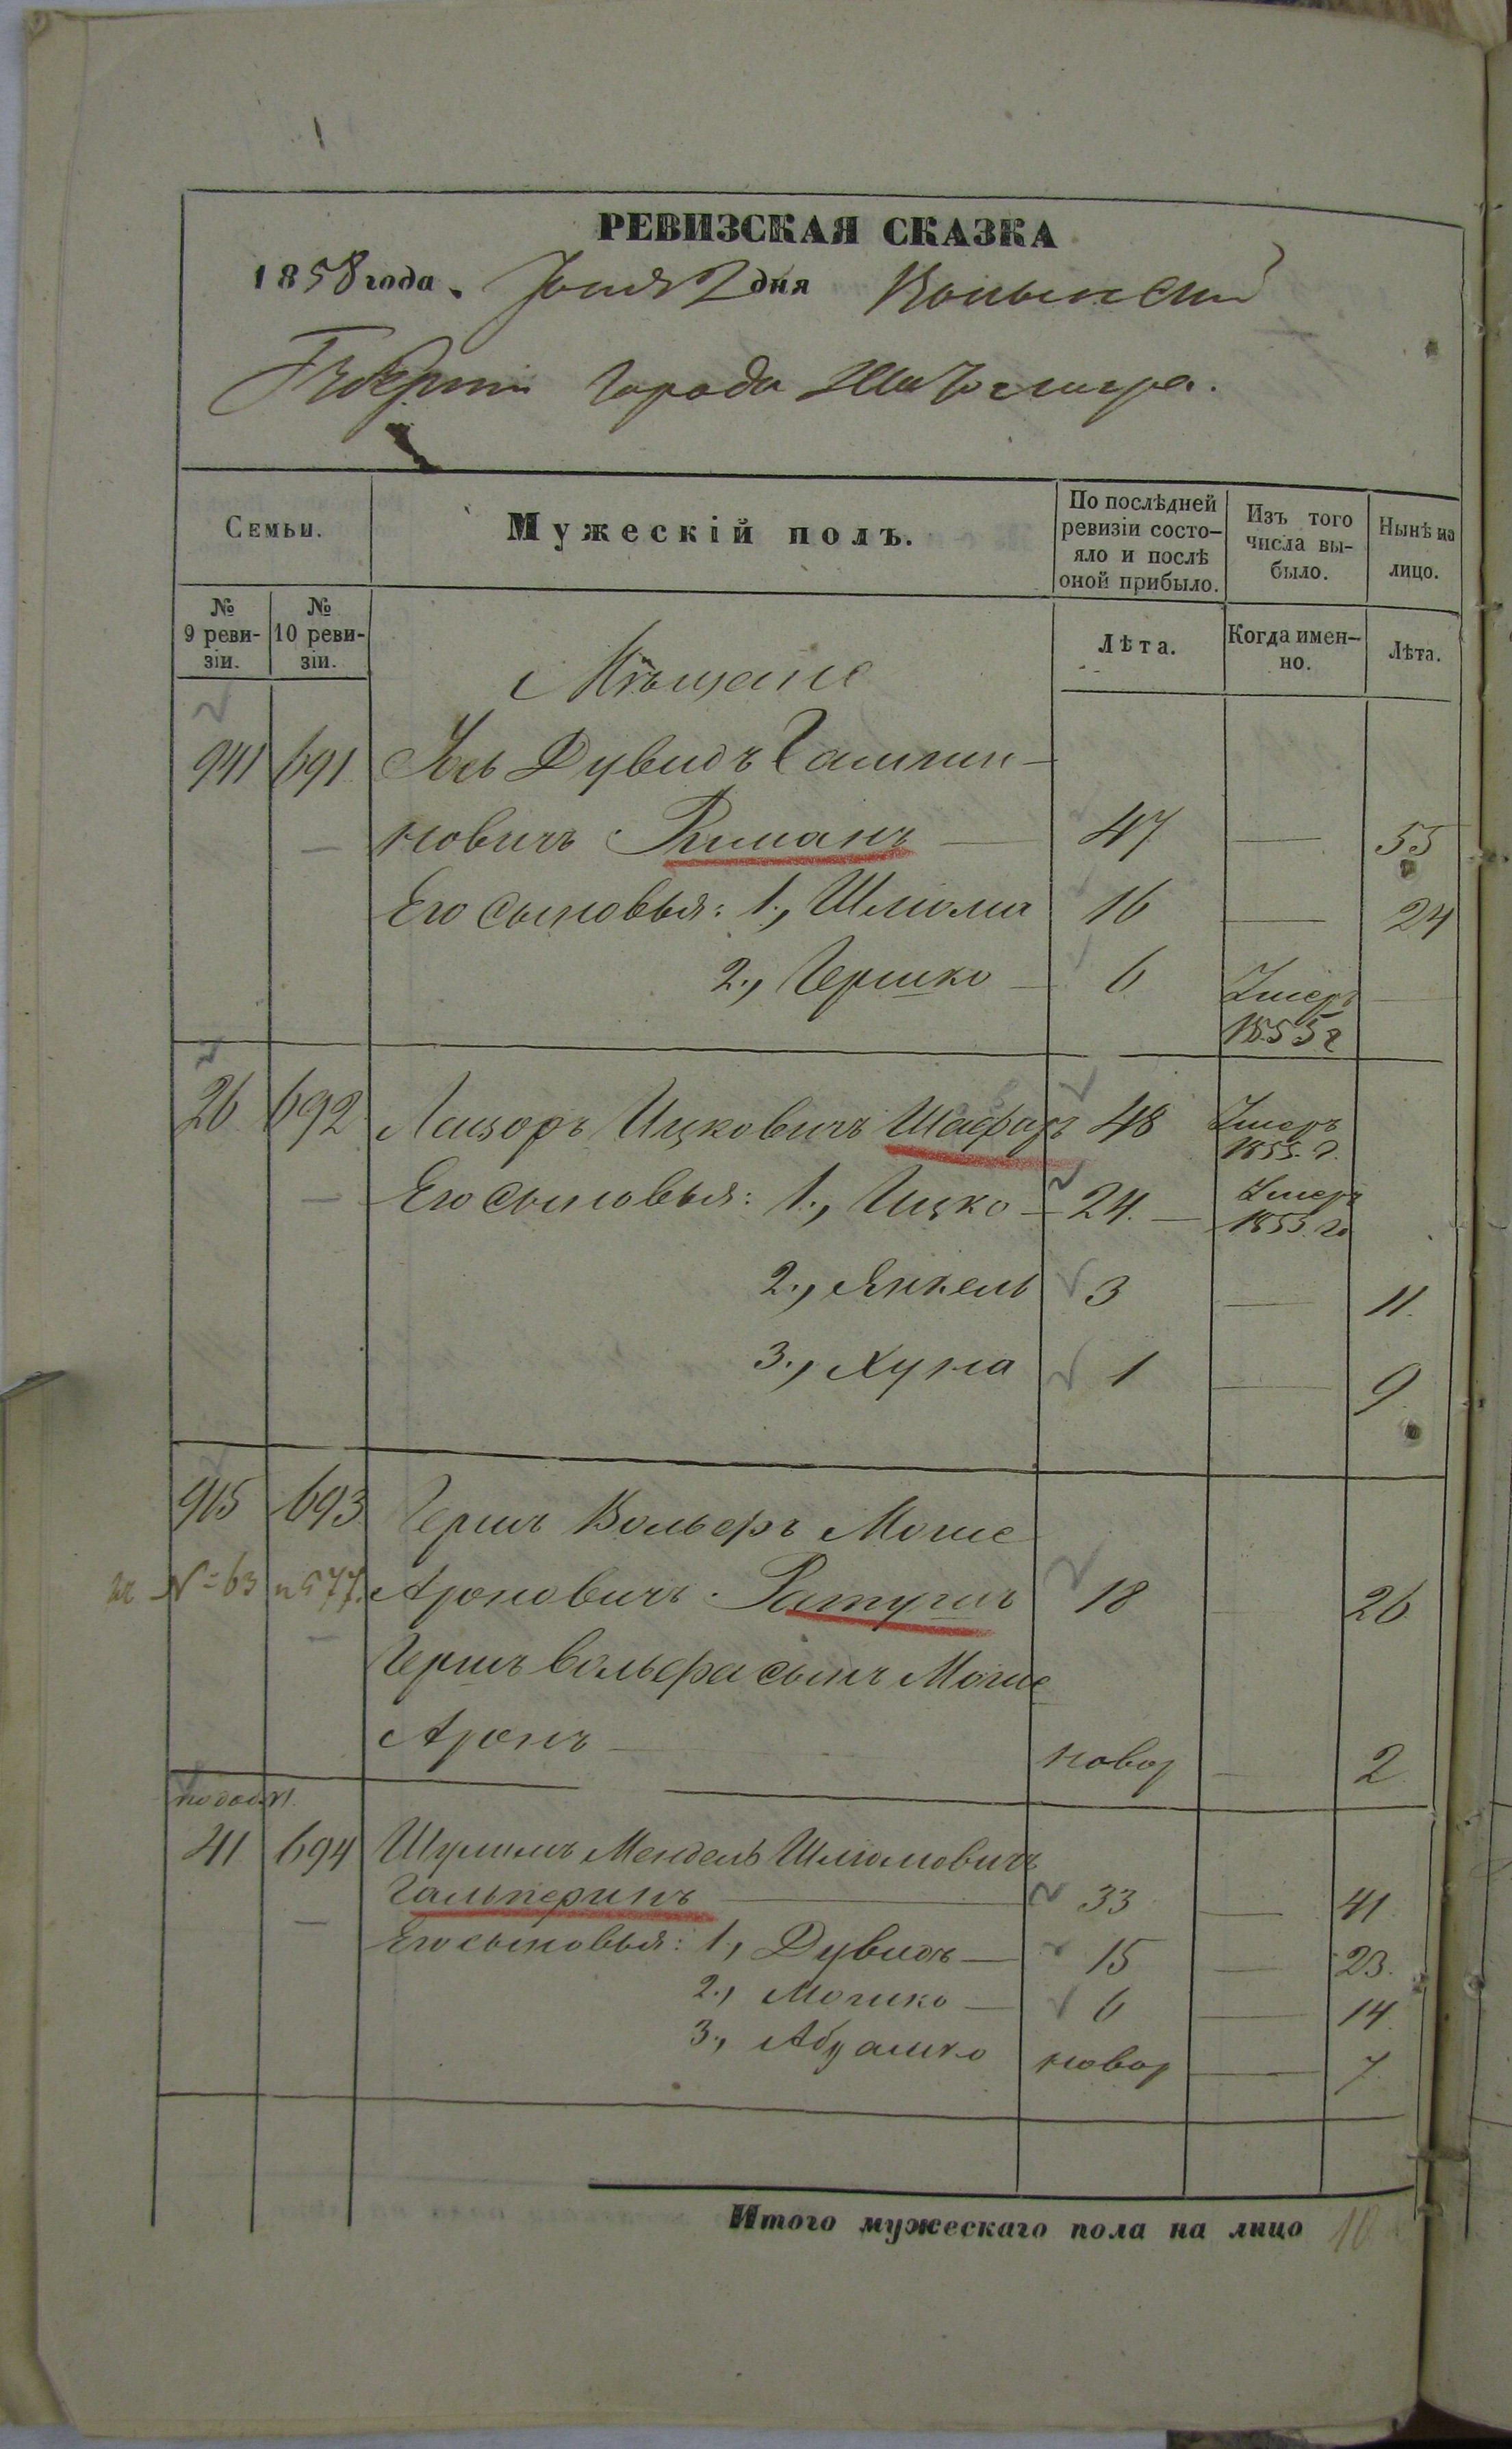 РЕВИЗСКАЯ СКАЗКА
1858 года. Іюня 2 дня Волынской
Губерніи города Житомира.
Семьи.
Мужескій полъ.
По послѣдней ревизіи состо-
яло и послѣ
оной прибыло.
Изъ того
числа вы-
было.
Нынѣ на
лицо.
№
9 реви-
зіи.
№
10 реви-
зіи.
Лѣта.
Когда имен-
но.
Лѣта.
Мѣщане
941 691 Іось Дувидъ
новичъ 47 — 55
Его сыновья: 1., Шлиома 16 — 24
2., Гершко — 6 Умеръ —
1855 г
26 692 Лейзоръ Ицковичъ Шафаръ 48 Умеръ
1855. г.
Его сыновья: 1., Ицко — 24. — Умеръ
1855. го
2., Янкель 3 — 11.
3., Хуна 1 — 9.
915 693 Гершъ Вольфъ Моше
№ 63 и 577. Ароновичъ Ратугичъ 18 — 26
Гершъ Вольфа сынъ Моше
Аронъ — новор — 2.
по доп. 
41 694 Шулимъ Мендель Шлиомовичъ
Гальперинъ — 33 — 41.
Его сыновья: 1., Дувидъ — 15 — 23.
2., Мошко — 6 — 14.
3., Абрашко новор — 7.
Итого мужескаго пола на лицо 10